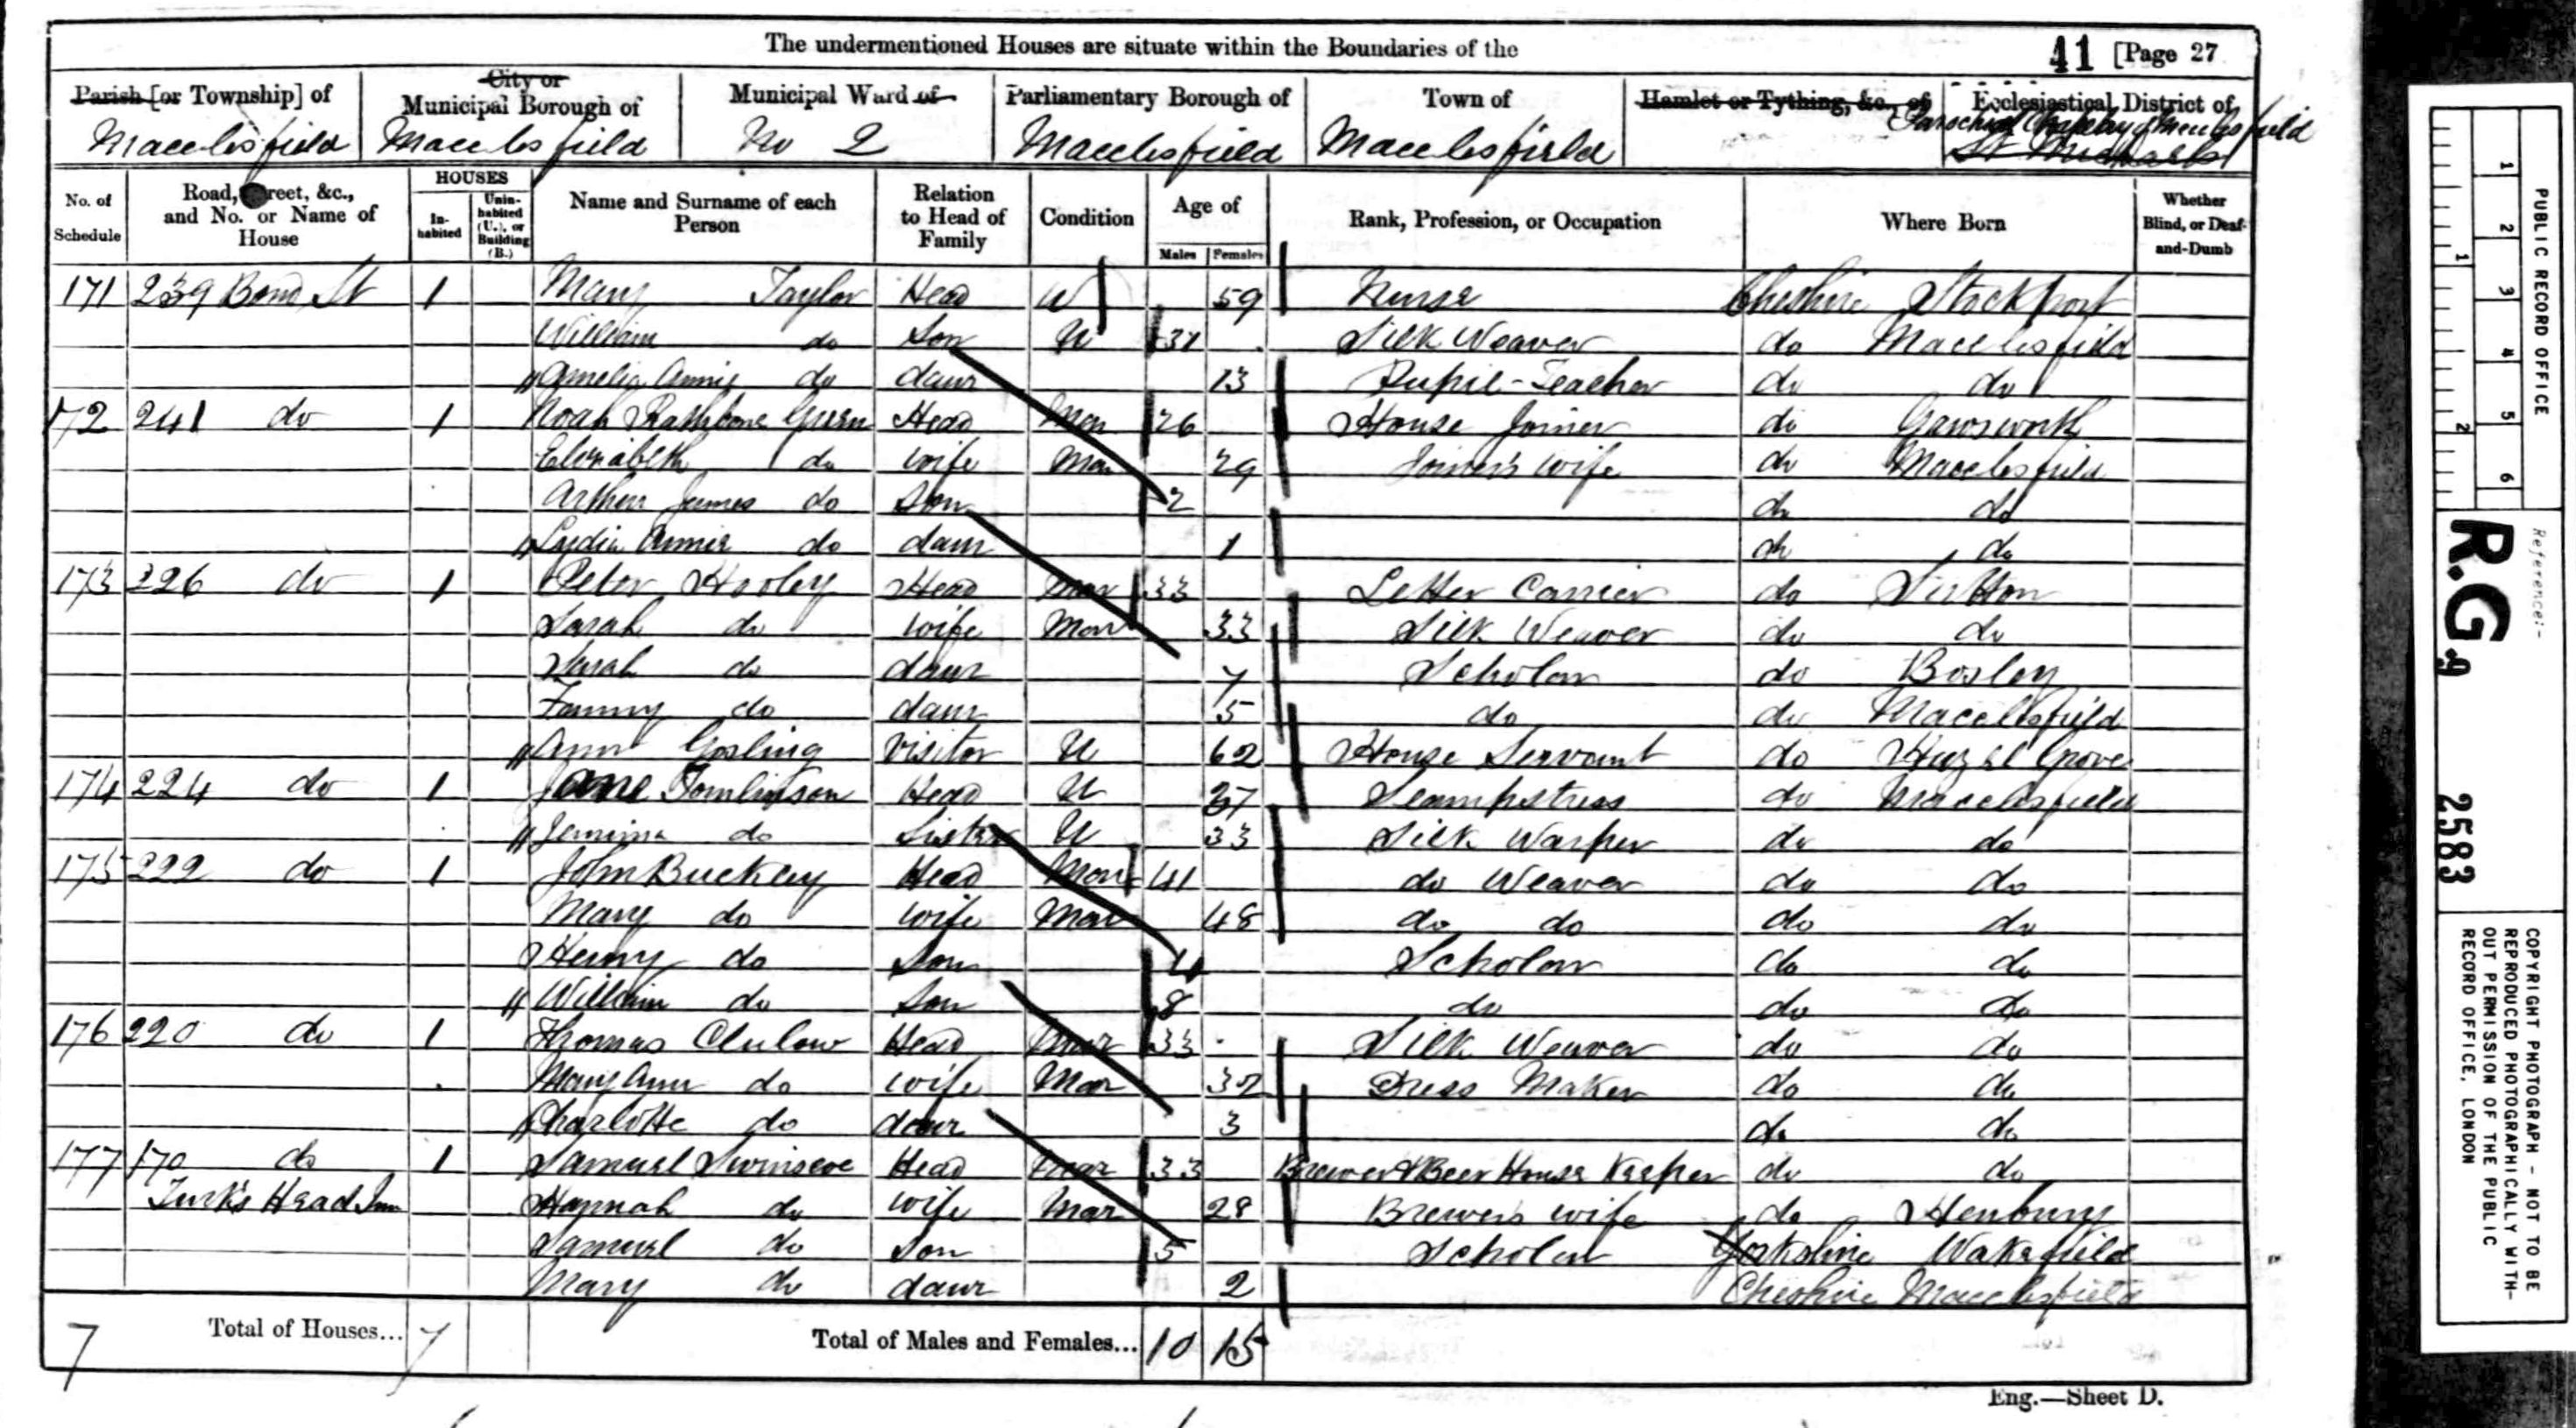 The undermentioned Houses are situate within the Boundaries of the
41 [Page 27
Parish [or Township] of
City or Municipal Borough of
Municipal Ward of
Parliamentary Borough of
Town of
Hamlet or Tything, &c., of
Ecclesiastical District of
Macclesfield Macclesfield No 2 Macclesfield Macclesfield
St Michaels
No. of Schedule
Road, Street, &c., and No. or Name of House
HOUSES
Inhabited
Uninhabited (U.), or Building (B.)
Name and Surname of each Person
Relation to Head of Family
Condition
Age of
Males Females
Rank, Profession, or Occupation
Where Born
Whether Blind, or Deaf-and-Dumb
171 239 Bond St 1 Mary Taylor Head W 59 Nurse Cheshire Stockport
William do Son U 31 Silk Weaver do Macclesfield
Amelia Annie do daur 13 Pupil-Teacher do do
172 241 do 1 Noah Rathbone Green Head Mar 26 House Joiner do Gawsworth
Elizabeth do wife Mar 29 Joiner's wife do Macclesfield
Arthur James do Son 2 do do
Lydia Annie do daur 1 do do
173 226 do 1 Peter Hooley Head Mar 33 Letter Carrier do Sutton
Sarah do wife Mar 33 Silk Weaver do do
Sarah do daur 7 Scholar do Bosley
Fanny do daur 5 do do Macclesfield
Ann Gosling Visitor U 62 House Servant do Hazel Grove
174 224 do 1 Jane Tomlinson Head U 37 Seampstress do Macclesfield
Jemima do Sister U 33 Silk Warper do do
175 222 do 1 John Buckley Head Mar 41 do Weaver do do
Mary do wife Mar 48 do do do do
Henry do Son Scholar do do
William do Son 8 do do do
176 220 do 1 Thomas Clulow Head Mar 33 Silk Weaver do do
Mary Ann do wife Mar 32 Dress Maker do do
Charlotte do daur 3 do do
177 170 do 1 Samuel Swinscoe Head Mar 33 Brewer & Beer House Keeper do do
Turk's Head Inn Hannah do wife Mar 28 Brewers wife do Henbury
Samuel do Son 5 Scholar Yorkshire Wakefield
Mary do daur 2 Cheshire Macclesfield
7 Total of Houses... 7 Total of Males and Females... 10 15
Eng.—Sheet D.
PUBLIC RECORD OFFICE
1 2 3 4 5 6
1 2
Reference:-
R.G. 9 2583
COPYRIGHT PHOTOGRAPH - NOT TO BE
REPRODUCED PHOTOGRAPHICALLY WITH-
OUT PERMISSION OF THE PUBLIC
RECORD OFFICE, LONDON